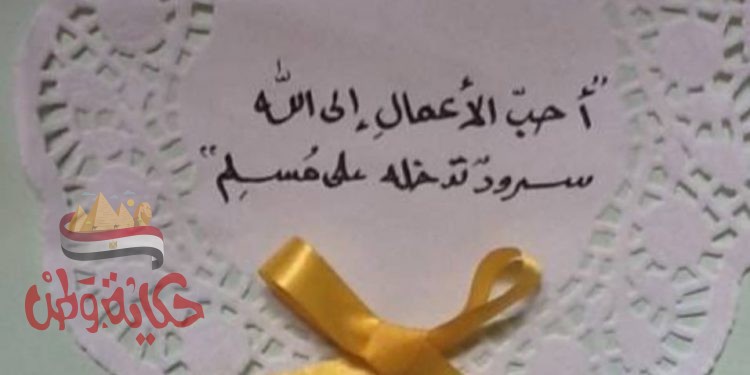 "أحبّ الأعمالِ إلى الله
سرورٌ تدخله على مُسلِم"
حكاية وطن